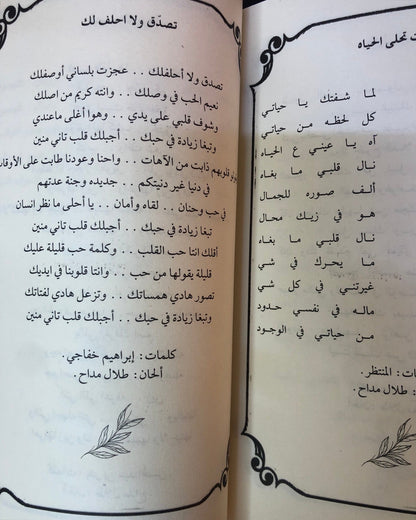 ت تحلى الحياه
لما شفتك يا حياتي
كل لحظه من حياتي
آه يا عيني ع الحياه
نال قلبي ما بغاه
ألف صوره للجمال
هو في زيك محال
نال قلبي ما بغاه
ما يحرك في شي
غيرتني في كل شي
ماله في نفسي حدود
من حياتي في الوجود
ات: المنتظر.
ن: طلال مداح.
تصدّق ولا احلف لك
تصدق ولا أحلفلك . . عجزت بلساني أوصفلك
نعيم الحب في وصلك . . وانته كريم من اصلك
وشوف قلبي على يدي . . وهوا أغلى ماعندي
وتبغا زيادة في حبك . . أجبلك قلب تاني منين
قلوبهم ذابت من الآهات . . واحنا وعودنا طابت على الأوقات
في دنيا غير دنيتكم . . جديده وجنة عدتهم
في حب وحنان . . لقاه وأمان . . يا أحلى ما نظر انسان
تبغا زيادة في حبك . . أجبلك قلب تاني منين
أقلك انتا حب القلب . . وكلمة حب قليلة عليك
قليلة يقولها من حب . . وانتا قلوبنا في ايديك
نصور هادي همساتك . . وتزعل هادي لفتاتك
وتبغا زيادة في حبك . . أجبلك قلب تاني منين
كلمات: إبراهيم خفاجي.
ألحان: طلال مداح.